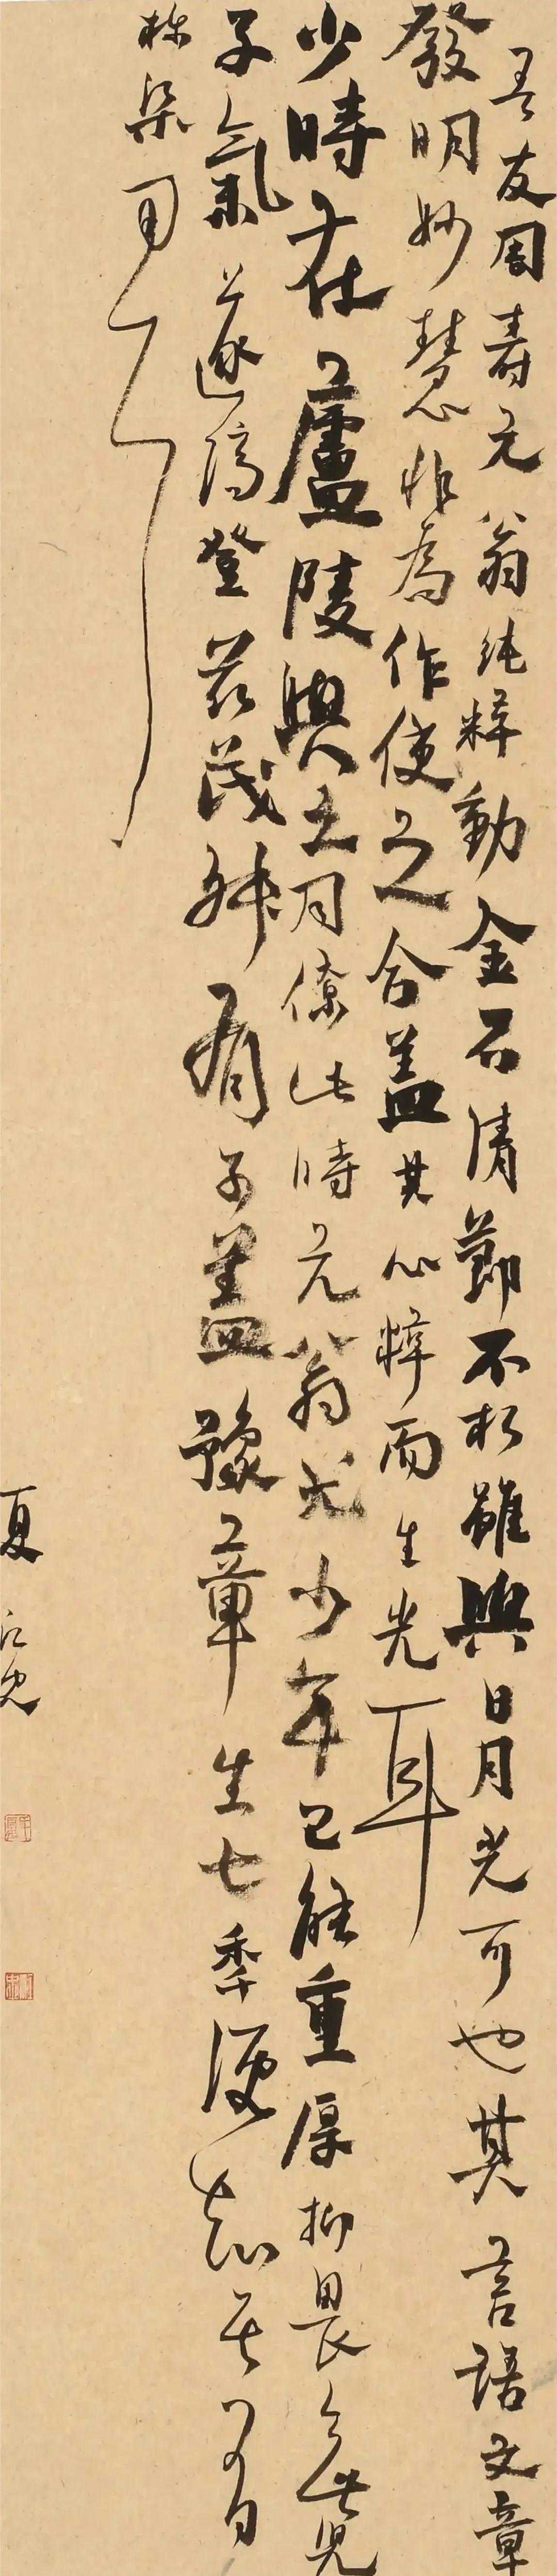 吾友周壽元翁純粹動金石清節不朽雖與日月光可也其言語文章
發明妙慧非為作使之合蓋其心粹而生光耳
少時在廬陵與之同僚此時元翁尤少年已能重厚抑畏無兒
子氣遂濟登茲茂邪有子蓋豫章生七年便知其有
棟梁用
夏